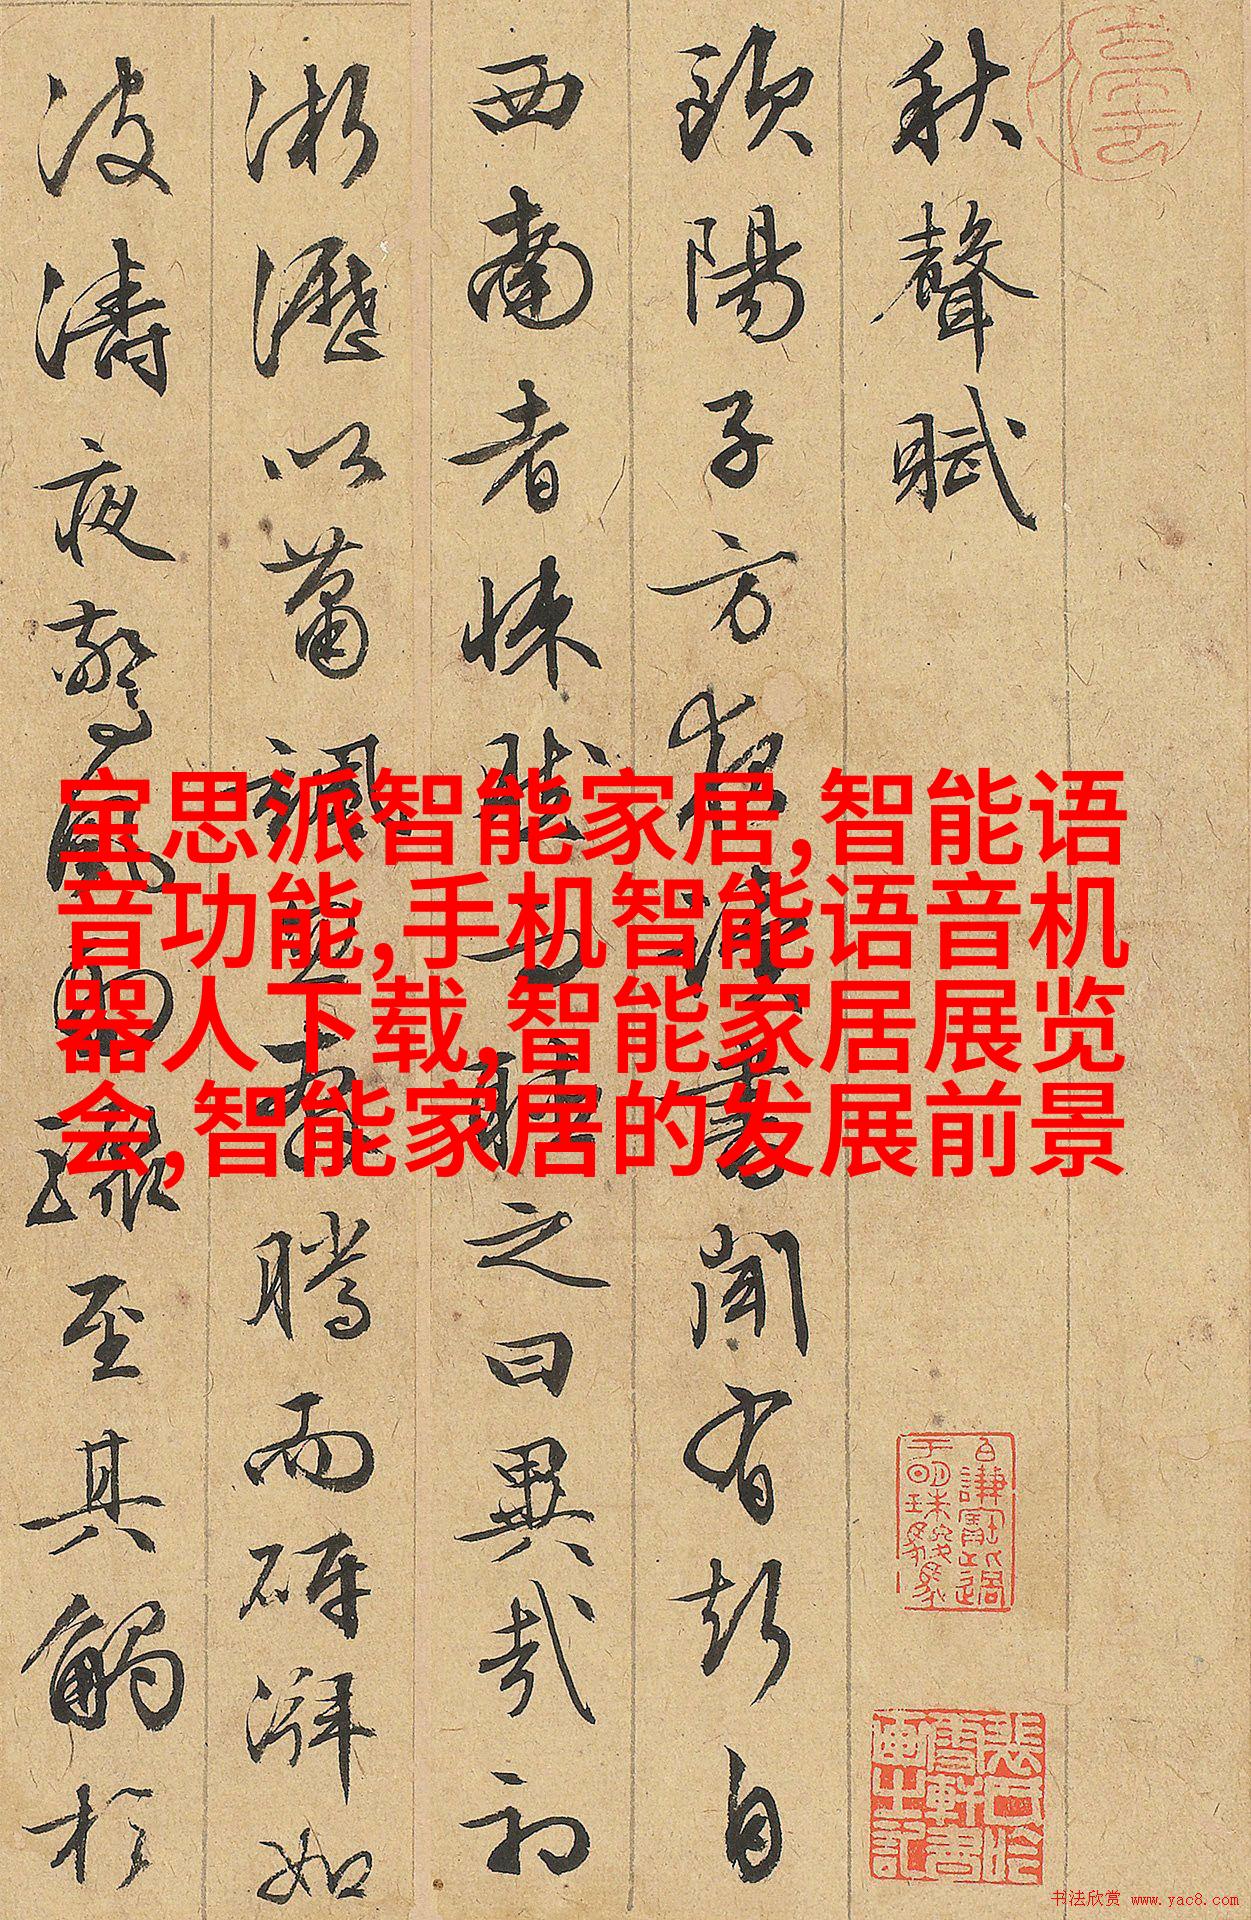 秋聲賦
歐陽子方夜讀書聞有聲自
西南者悚然而聽之曰異哉初
淅瀝以蕭颯忽奔騰而砰湃如
波濤夜驚風雨驟至其觸於
宝思派智能家居,智能语
音功能,手机智能语音机
器人下载,智能家居展览
会,智能家居的发展前景
书法欣赏 www.yac8.com